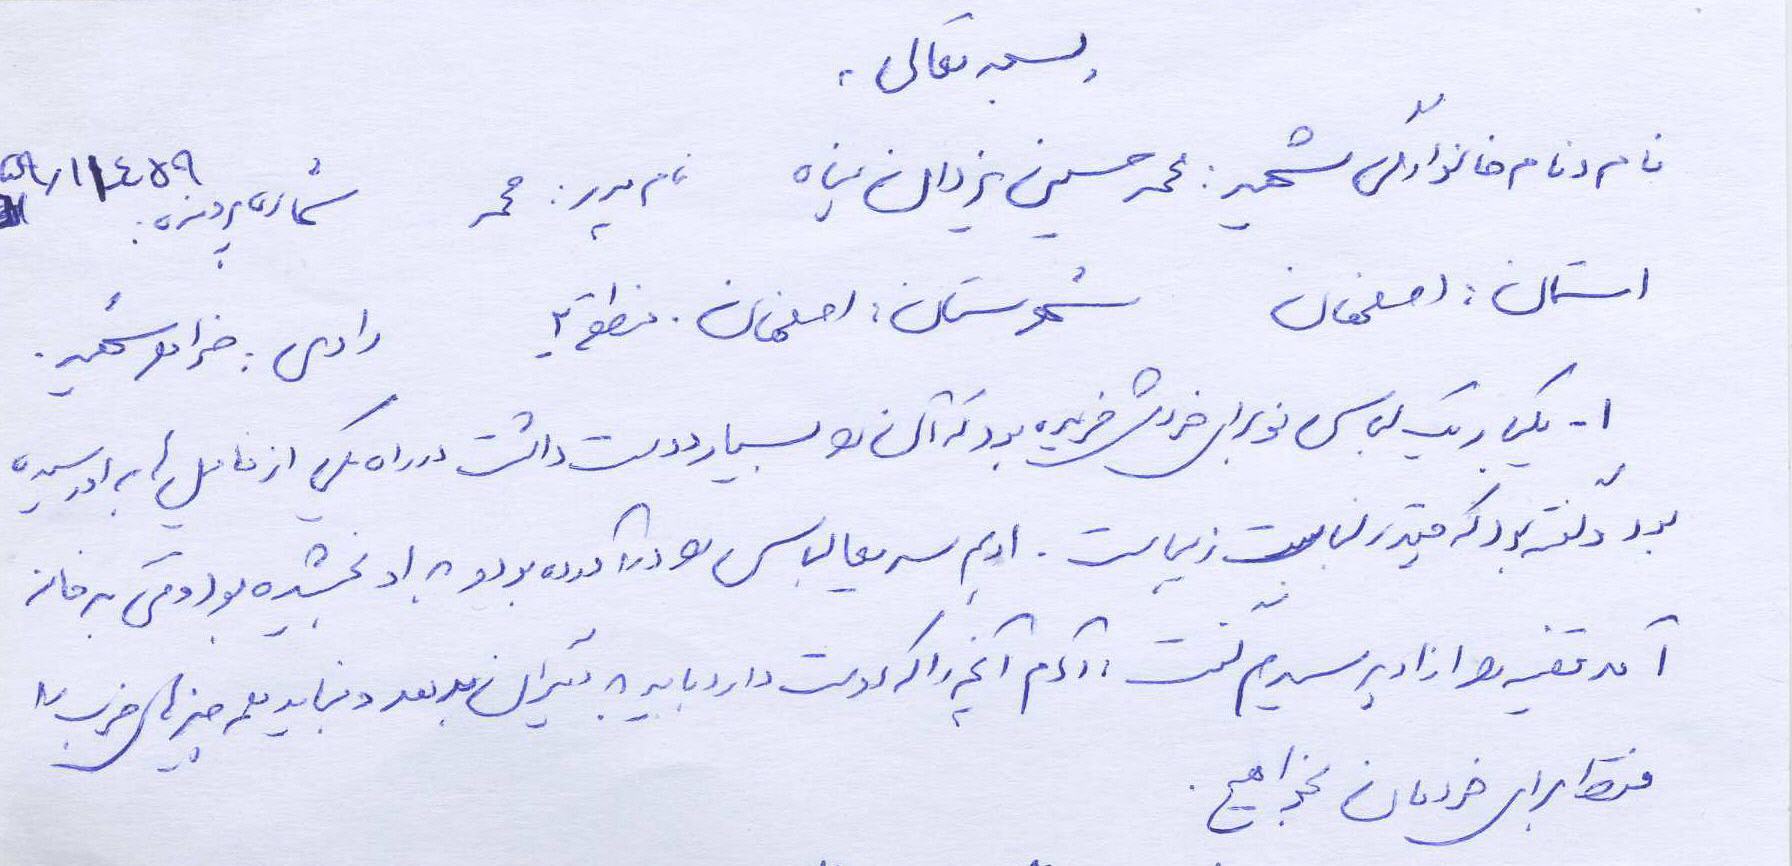 بسمه تعالی،
نام و نام خانوادگی شهید: محمدحسین یزدان پناه نام پدر: محمد شماره پرونده:
استان: اصفهان شهرستان: اصفهان. منطقه ۲ راوی: خواهر شهید.
۱- یکبار یک لباس نو برای خودش خریده بود که آن را بسیار دوست داشت در راه یکی از فامیل ها به او رسیده
بود و گفته بود که چقدر لباست زیباست. او هم سریعا لباس را در آورده بود و به او بخشیده بود وقتی به خانه
آمد قضیه را از او پرسیدم گفت: آدم آنچه را که دوست دارد باید به دیگران بدهد و نباید همه چیزهای خوب را
فقط برای خودمان بخواهیم.